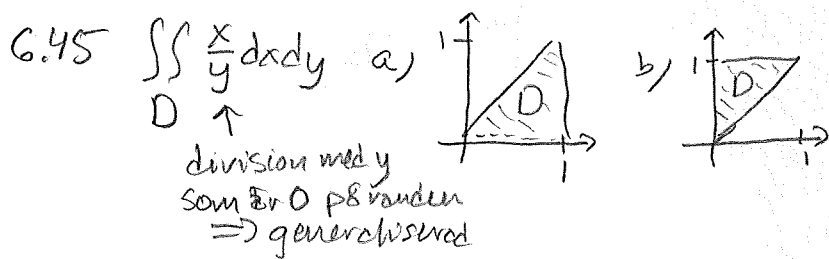 6.45 ∬ x/y dxdy a) 1 D 1 b) 1 D 1
D ↑
division med y
som är 0 på randen
⇒ generaliserad